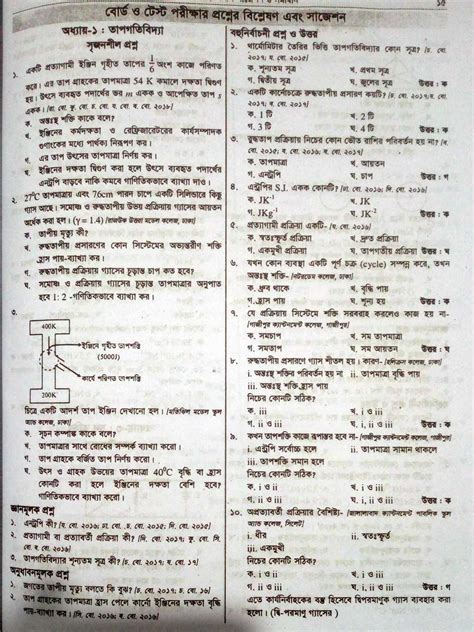 ১৫
বোর্ড ও টেস্ট পরীক্ষার প্রশ্নের বিশ্লেষণ এবং সাজেশন
অধ্যায়-১ : তাপগতিবিদ্যা
সৃজনশীল প্রশ্ন
১. একটি প্রত্যাগামী ইঞ্জিন গৃহীত তাপের 1/6 অংশ কাজে পরিণত
করে। এর তাপ গ্রাহকের তাপমাত্রা 54 K কমালে দক্ষতা দ্বিগুণ
হয়। উৎসে ব্যবহৃত পদার্থের ভর m একক ও আপেক্ষিক তাপ s
একক।
ক. অন্তঃস্থ শক্তি কাকে বলে?
খ. ইঞ্জিনের কর্মদক্ষতা ও রেফ্রিজারেটরের কার্যসম্পাদক
গুণাংকের মধ্যে পার্থক্য নিরূপণ কর।
গ. এর তাপ উৎসের তাপমাত্রা নির্ণয় কর।
ঘ. ইঞ্জিনের দক্ষতা দ্বিগুণ করা হলে উৎসে ব্যবহৃত পদার্থের
এনট্রপি বাড়বে নাকি কমবে গাণিতিকভাবে ব্যাখ্যা দাও।
২. 27°C তাপমাত্রা এবং 76cm পারদ চাপে একটি সিলিন্ডারে কিছু
গ্যাস আছে। সমোষ্ণ ও রুদ্ধতাপীয় উভয় প্রক্রিয়ায় গ্যাসের আয়তন
অর্ধেক করা হল। (γ = 1.4) [রাজউক উত্তরা মডেল কলেজ, ঢাকা]
ক. তাপীয় মৃত্যু কী?
খ. রুদ্ধতাপীয় প্রসারণের কোন সিস্টেমের অভ্যন্তরীণ শক্তি
হ্রাস পায়-ব্যাখ্যা কর।
গ. রুদ্ধতাপীয় প্রক্রিয়ায় গ্যাসের চূড়ান্ত চাপ কত হবে?
ঘ. সমোষ্ণ ও প্রক্রিয়ায় গ্যাসের চূড়ান্ত তাপমাত্রার অনুপাত
হবে 1: 2 -গণিতিকভাবে ব্যাখ্যা কর।
৩.
400K
ইঞ্জিনে গৃহীত তাপশক্তি
(5000J)
কার্যে পরিণত তাপশক্তি
200K
চিত্রে একটি আদর্শ তাপ ইঞ্জিন দেখানো হল। [মতিঝিল মডেল স্কুল
অ্যান্ড কলেজ, ঢাকা]
ক. সূচন কম্পাঙ্ক কাকে বলে?
খ. তাপমাত্রার সাথে রোধের সম্পর্ক ব্যাখ্যা কর।
গ. তাপ গ্রাহকে বর্জিত তাপ নির্ণয় করো।
ঘ. উৎস ও গ্রাহক উভয়ের তাপমাত্রা 40°C বৃদ্ধি বা হ্রাস
কোনটি করা হলে ইঞ্জিনের দক্ষতা বেশি হবে?
গাণিতিকভাবে ব্যাখ্যা কর।
জ্ঞানমূলক প্রশ্ন
১. এনট্রপি কী?
২. প্রত্যাগামী বা প্রত্যাবর্তী প্রক্রিয়া কী?
৩. তাপগতিবিদ্যার শূন্যতম সূত্র কী?
অনুধাবনমূলক প্রশ্ন
১. জগতের তাপীয় মৃত্যু বলতে কি বুঝ?
২. তাপ গ্রাহকের তাপমাত্রা হ্রাস পেলে কার্নো ইঞ্জিনের দক্ষতা বৃদ্ধি
পায়-ব্যাখ্যা কর।
বহুনির্বাচনী প্রশ্ন ও উত্তর
১. থার্মোমিটার তৈরির ভিত্তি তাপগতিবিদ্যার কোন সূত্র?
ক. শূন্যতম সূত্র খ. প্রথম সূত্র
গ. দ্বিতীয় সূত্র ঘ. জুলের সূত্র উত্তর : ক
২. একটি কার্নোচক্রে রুদ্ধতাপীয় প্রসারণ কয়টি?
ক. 1 টি খ. 2 টি
গ. 3 টি ঘ. 4 টি উত্তর : ক
৩. রুদ্ধতাপ প্রক্রিয়ায় নিচের কোন ভৌত রাশির পরিবর্তন হয় না?
ক. তাপমাত্রা খ. আয়তন
গ. এনট্রপি ঘ. চাপ উত্তর : গ
৪. এন্ট্রপির S.I. একক কোনটি?
ক. JK⁻¹ খ. JK
গ. JKg⁻¹ ঘ. JK⁻² উত্তর : ক
৫. প্রত্যাগামী প্রক্রিয়া একটি-
ক. স্বতঃস্ফূর্ত প্রক্রিয়া খ. দ্রুত প্রক্রিয়া
গ. একমুখী প্রক্রিয়া ঘ. তাপগতীয় প্রক্রিয়া উত্তর : ঘ
৬. যখন কোন ব্যবস্থা একটি পূর্ণ চক্র (cycle) সম্পন্ন করে, তখন
অন্তঃস্থ শক্তি- [নটরডেম কলেজ, ঢাকা]
ক. ধ্রুব থাকে খ. বৃদ্ধি পায়
গ. হ্রাস পায় ঘ. শূন্য হয় উত্তর : ক
৭. যে প্রক্রিয়ায় সিস্টেমে শক্তি সরবরাহ করলেও কাজ হয় না-
[গাজীপুর ক্যান্টনমেন্ট কলেজ, গাজীপুর]
ক. সমচাপ খ. সমতাপমাত্রা
গ. সমতাপ ঘ. সম আয়তন উত্তর : ঘ
৮. রুদ্ধতাপীয় প্রসারণে গ্যাস শীতল হয়। কারণ- [হলিক্রস কলেজ, ঢাকা]
i. অন্তঃস্থ শক্তির পরিবর্তন হয় না ii. তাপমাত্রা বৃদ্ধি পায়
iii. অন্তঃস্থ শক্তি হ্রাস পায়
নিচের কোনটি সঠিক?
ক. iii খ. i ও iii
গ. ii ও iii ঘ. i, ii ও iii উত্তর : ক
৯. কখন তাপশক্তি কাজে রূপান্তর হবে না- [গাজীপুর ক্যান্টনমেন্ট কলেজ, গাজীপুর]
i. এন্ট্রপি সর্বোচ্চ হলে ii. তাপমাত্রা সামান থাকলে
iii. তাপশক্তি সমান হলে
নিচের কোনটি সঠিক?
ক. i ও ii খ. i ও iii
গ. ii ও iii ঘ. i, ii ও iii উত্তর : ক
১০. অপ্রত্যাবর্তী প্রক্রিয়ার বৈশিষ্ট্য- [জালালাবাদ ক্যান্টনমেন্ট পাবলিক স্কুল
অ্যান্ড কলেজ, সিলেট]
i. ধীর ii. স্বতঃস্ফূর্ত
iii. একমুখী
নিচের কোনটি সঠিক?
ক. i ও ii খ. i ও iii
গ. ii ও iii ঘ. i, ii ও iii উত্তর : গ
এতে কার্যনির্বাহকের বস্তু হিসেবে দ্বিপরমাণুক গ্যাস ব্যবহার করা
হলো। (দ্বি-পরমাণু গ্যাসের )